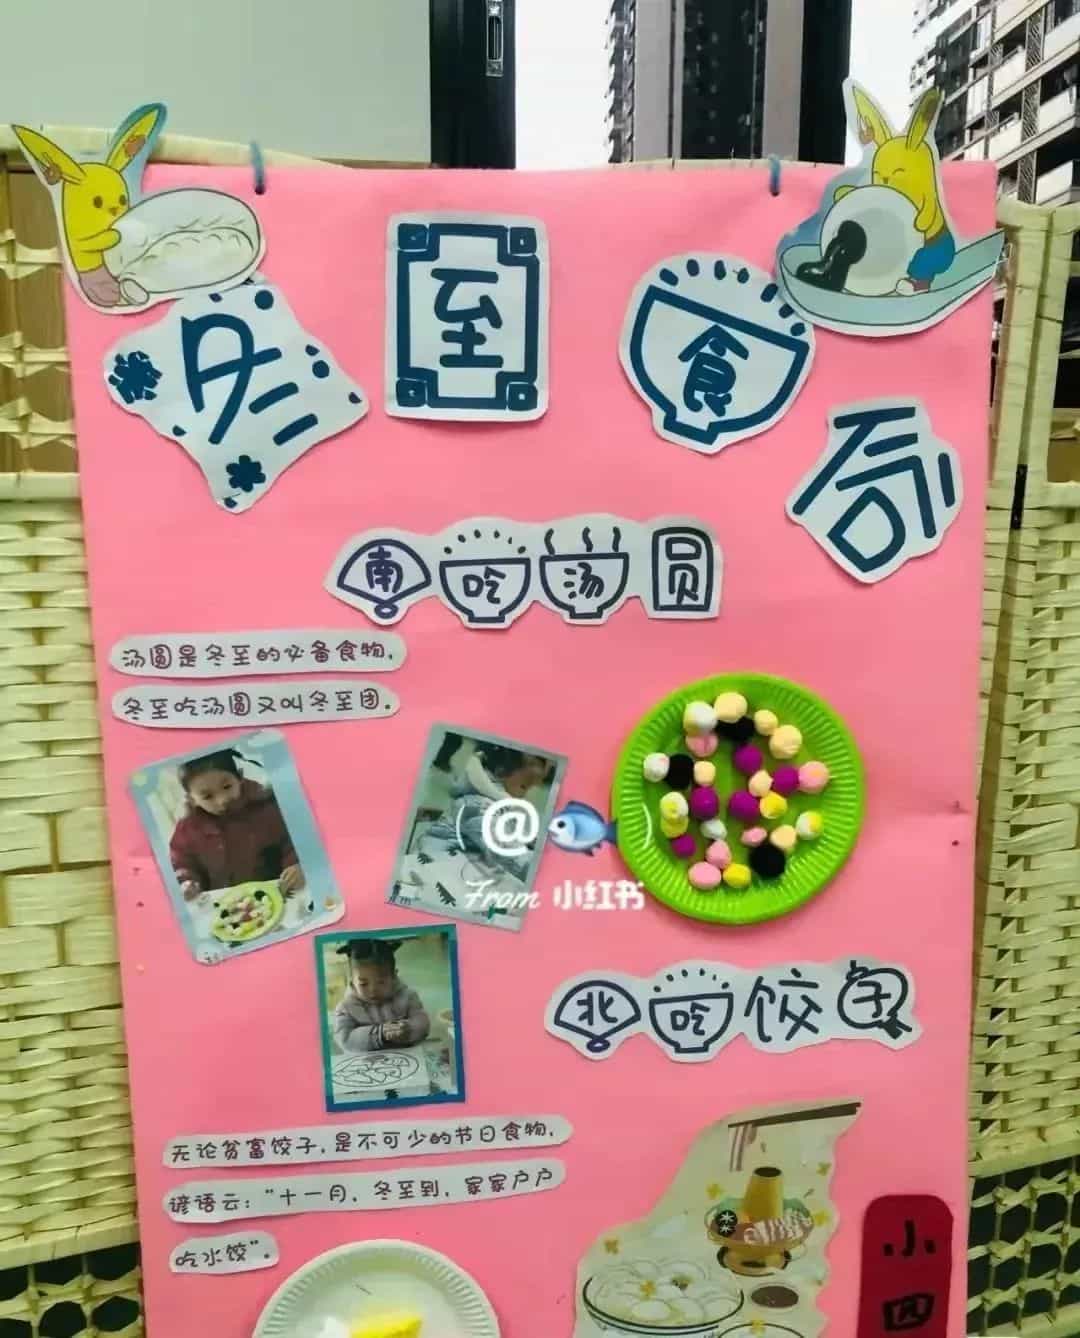 冬至食
南吃汤圆
汤圆是冬至的必备食物，
冬至吃汤圆又叫冬至团。
@
From 小红书
北吃饺子
无论贫富饺子，是不可少的节日食物，
谚语云：“十一月，冬至到，家家户户
吃水饺”。
小四